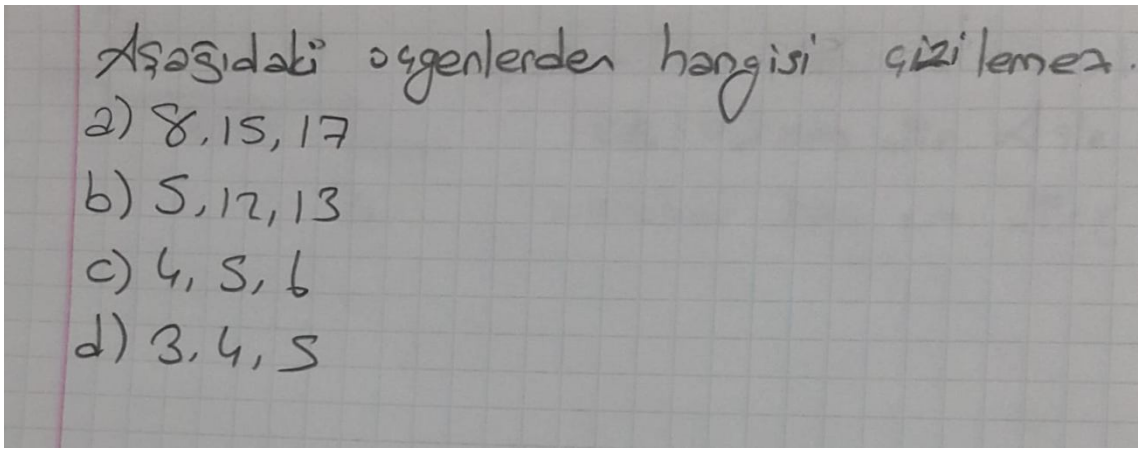 Aşağıdaki üçgenlerden hangisi çizilemez.
a) 8, 15, 17
b) 5, 12, 13
c) 4, 5, 6
d) 3, 4, 5